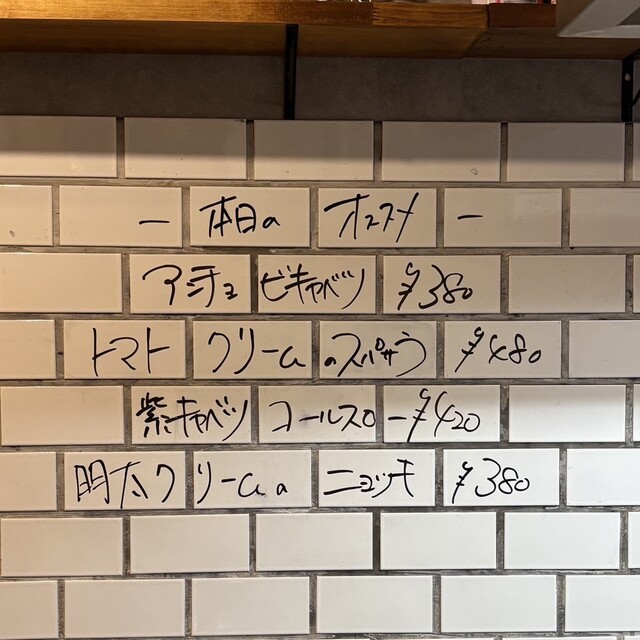 ー 本日の オススメ ー
アンチョビキャベツ ¥380
トマトクリームのスパサラ ¥480
紫キャベツコールスロー ¥420
明太クリームのニョッキ ¥380